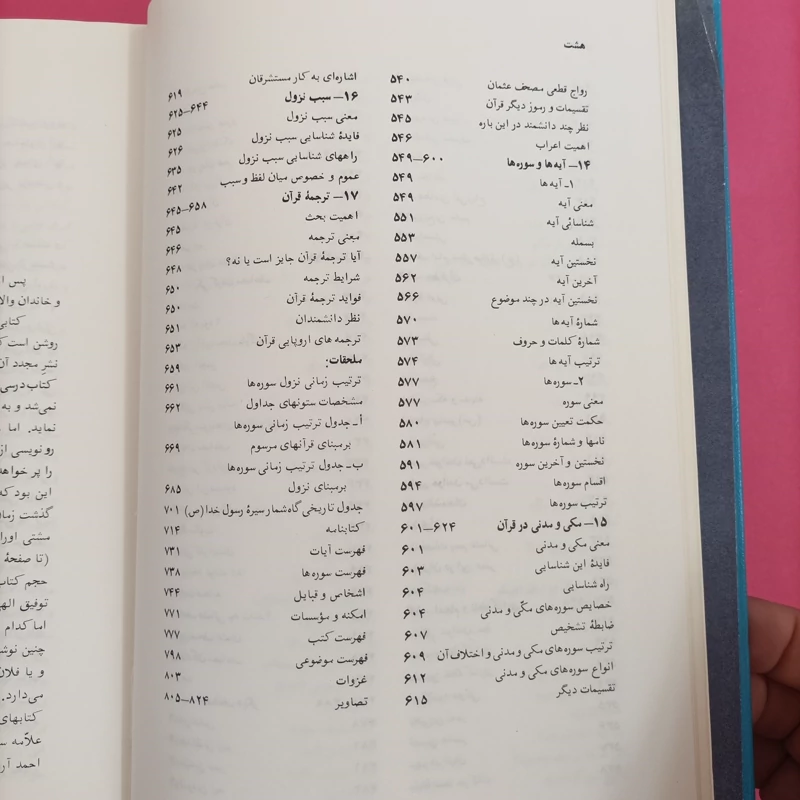 هشت
رواج قطعی مصحف عثمان ۵۴۰
تقسیمات و رموز دیگر قرآن ۵۴۳
نظر چند دانشمند در این باره ۵۴۵
اهمیت اعراب ۵۴۶
۱۴- آیه‌ها و سوره‌ها ۶۰۰-۵۴۹
۱- آیه‌ها ۵۴۹
معنی آیه ۵۴۹
شناسائی آیه ۵۵۱
بسمله ۵۵۳
نخستین آیه ۵۵۷
آخرین آیه ۵۶۲
نخستین آیه در چند موضوع ۵۶۶
شمارهٔ آیه‌ها ۵۷۰
شمارهٔ کلمات و حروف ۵۷۳
ترتیب آیه‌ها ۵۷۴
۲- سوره‌ها ۵۷۷
معنی سوره ۵۷۷
حکمت تعیین سوره‌ها ۵۸۰
نامها و شمارهٔ سوره‌ها ۵۸۱
نخستین و آخرین سوره ۵۹۱
اقسام سوره‌ها ۵۹۴
ترتیب سوره‌ها ۵۹۷
۱۵- مکی و مدنی در قرآن ۶۲۴-۶۰۱
معنی مکی و مدنی ۶۰۱
فایدهٔ این شناسایی ۶۰۳
راه شناسایی ۶۰۴
خصایص سوره‌های مکّی و مدنی ۶۰۴
ضابطهٔ تشخیص ۶۰۷
ترتیب سوره‌های مکی و مدنی و اختلاف آن ۶۰۹
انواع سوره‌های مکی و مدنی ۶۱۲
تقسیمات دیگر ۶۱۵
اشاره‌ای به کار مستشرقان ۶۱۹
۱۶- سبب نزول ۶۴۴-۶۲۵
معنی سبب نزول ۶۲۵
فایدهٔ شناسایی سبب نزول ۶۲۶
راههای شناسایی سبب نزول ۶۳۵
عموم و خصوص میان لفظ و سبب ۶۴۲
۱۷- ترجمهٔ قرآن ۶۵۸-۶۴۵
اهمیت بحث ۶۴۵
معنی ترجمه ۶۴۶
آیا ترجمهٔ قرآن جایز است یا نه؟ ۶۴۸
شرایط ترجمه ۶۵۰
فواید ترجمهٔ قرآن ۶۵۰
نظر دانشمندان ۶۵۱
ترجمه های اروپایی قرآن ۶۵۳
ملحقات: ۶۵۹
ترتیب زمانی نزول سوره‌ها ۶۶۱
مشخصات ستونهای جداول ۶۶۲
أ- جدول ترتیب زمانی سوره‌ها
برمبنای قرآنهای مرسوم ۶۶۹
ب- جدول ترتیب زمانی سوره‌ها
برمبنای نزول ۶۸۵
جدول تاریخی گاه‌شمار سیرهٔ رسول خدا (ص) ۷۰۱
کتابنامه ۷۱۴
فهرست آیات ۷۳۱
فهرست سوره‌ها ۷۳۸
اشخاص و قبایل ۷۴۴
امکنه و مؤسسات ۷۷۱
فهرست کتب ۷۷۷
فهرست موضوعی ۷۹۸
غزوات ۸۰۳
تصاویر ۸۲۴-۸۰۵
پس ا
و خاندان والا
کتابی
روشن است ک
نشر مجدد آن
کتاب درسی
نمی‌شد و به
نماید. اما
رونویسی از
را پر خواهد
این بود که
گذشت زمان
مشتی اورا
(تا صفحهٔ
حجم کتاب
توفیق اله
اما کدام
چنین نوش
و یا فلان
می‌دارد.
کتابهای
علاّمه س
احمد آر